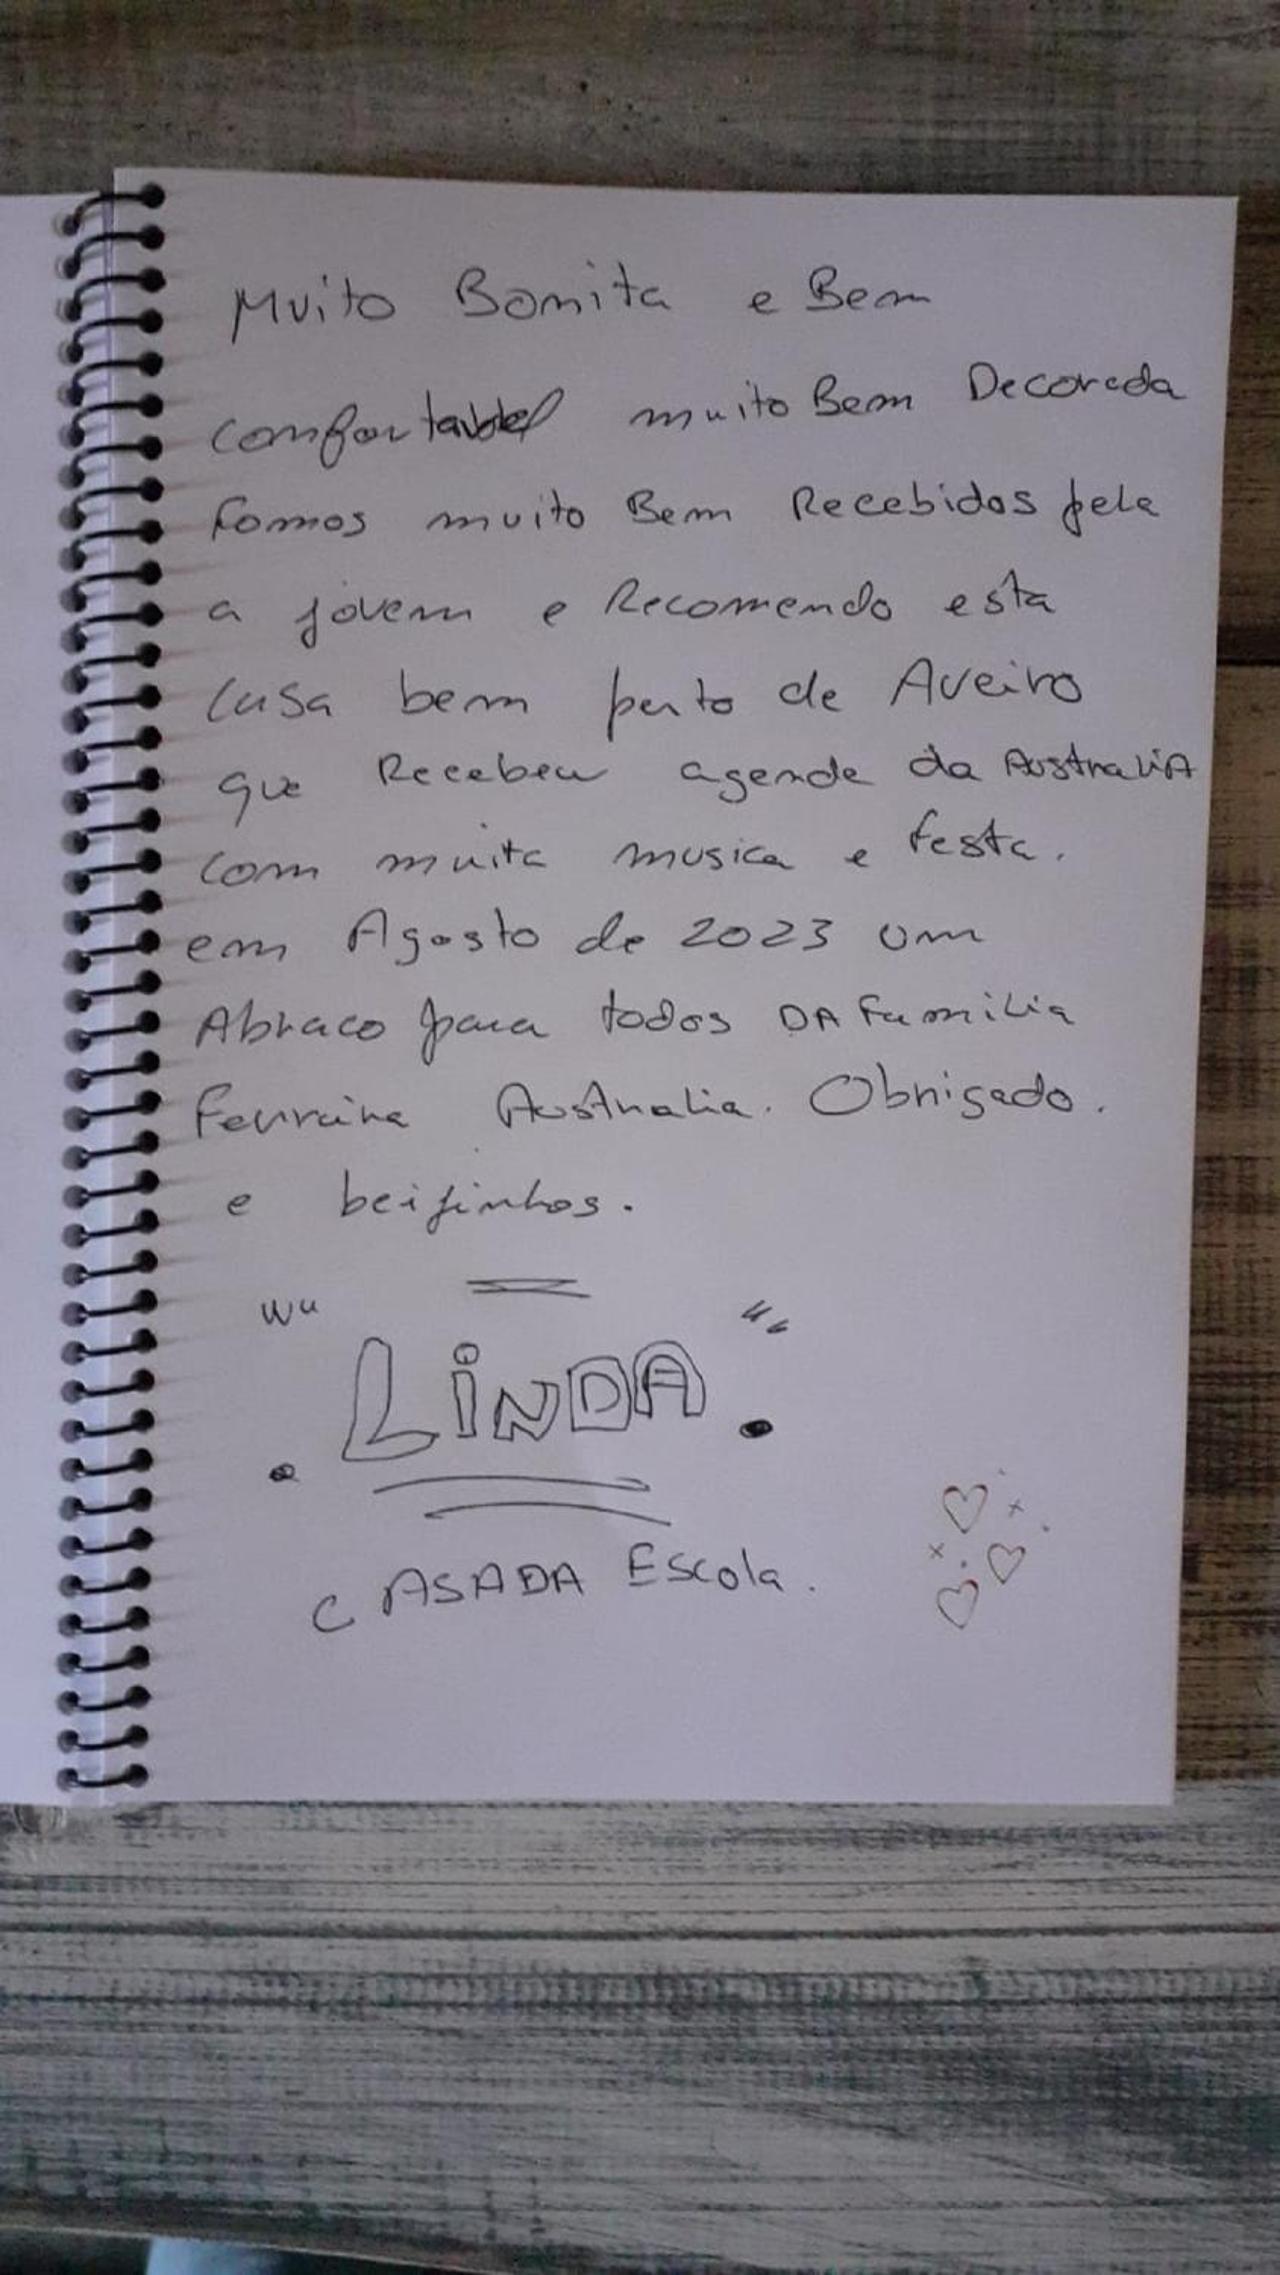 Muito Bonita e Bem
confortavel muito Bem Decorada
fomos muito Bem Recebidos pela
a jovem e Recomendo esta
Casa bem perto de Aveiro
que Recebeu agende da AustraliA
com muita musica e festa.
em Agosto de 2023 um
Abraco para todos DA Familia
Ferreira Australia. Obrigado.
e beijinhos.
LiNDA
CASADA Escola.